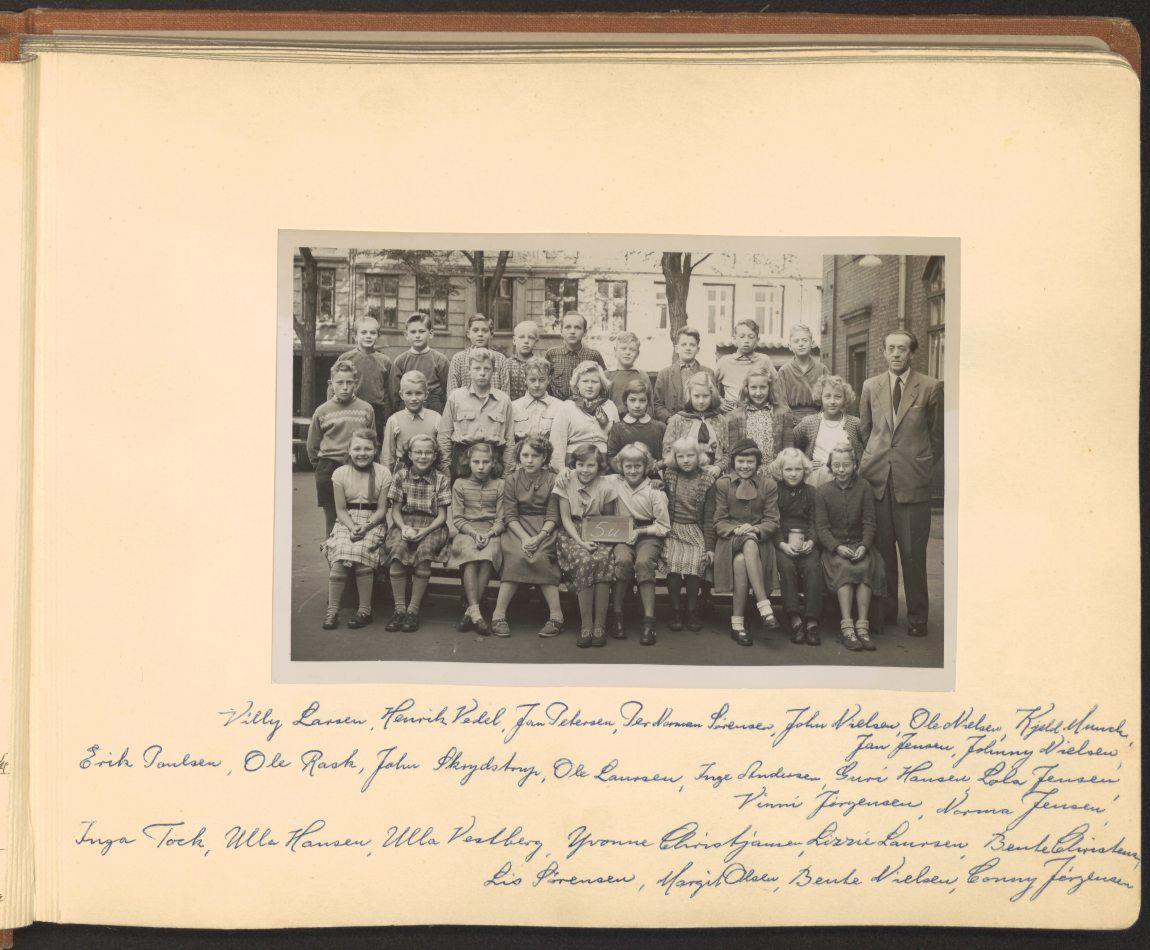 5u
Villy Larsen, Henrik Vedel, Jan Petersen, Per Norman Sørensen, John Nielsen, Ole Nielsen, Kjeld Munck,
Jan Jensen, Johnny Nielsen,
Erik Paulsen, Ole Rask, John Skrydstrup, Ole Laursen, Inge Andersen, Guri Hansen, Lola Jensen,
Vinni Jørgensen, Norma Jensen,
Inga Tock, Ulla Hansen, Ulla Vestberg, Yvonne Christjansen, Lizzie Laursen, Bente Christens,
Lis Sørensen, Margit Olsen, Bente Nielsen, Conny Jørgensen